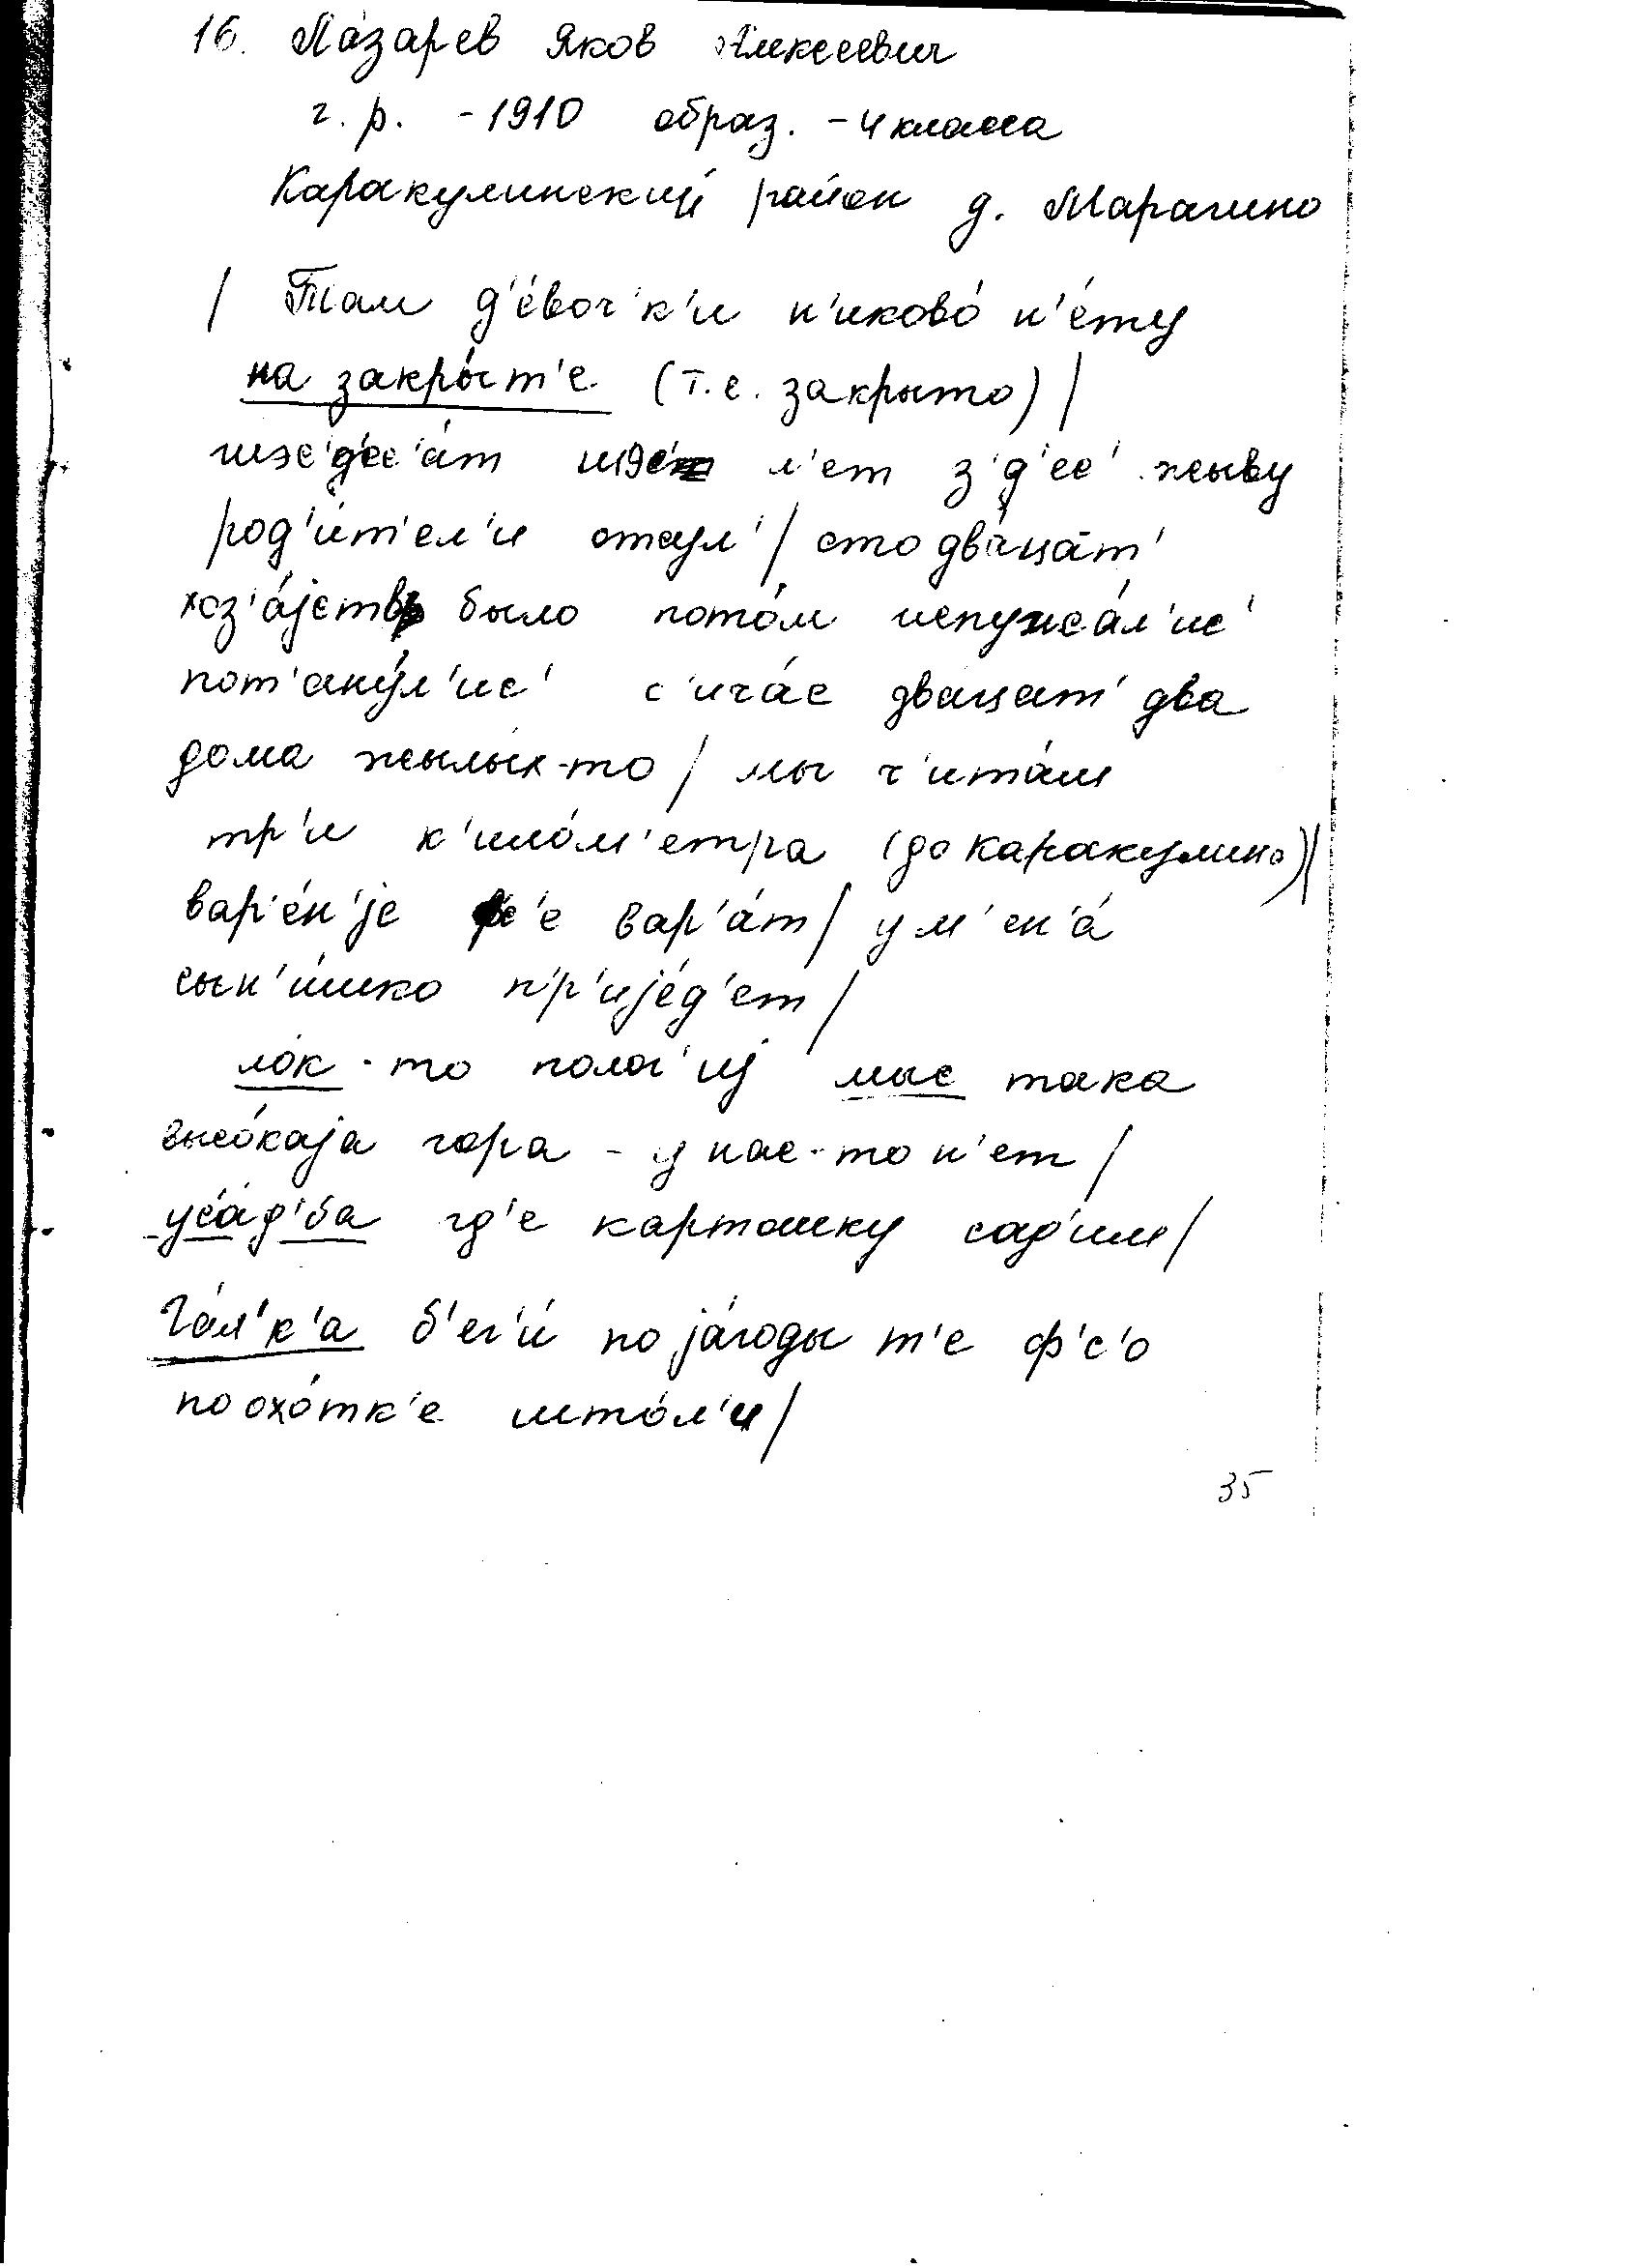 16. Ла́зарев Яков Алексеевич
г. р. - 1910 образ. - 4 класса
Каракулинский район д. Марагино
/ Там д'е́воч'к'и н'иково́ н'е́ту
на закры́т'е (т.е. закрыто) /
шэс'д'ес'а́т шэс' л'ет з'д'ес' жыву
род'и́т'ел'и откул' / сто два́цат'
хоз'а́јств было пото́м испужа́л'ис'
пот'ану́л'ис' с'ича́с двацат' два
дома жылы́к-то / мы ч'ита́м
тр'и к'ило́м'етра (до Каракулино) /
вар'е́н'је с'е вар'а́т / у м'ен'а́
сын'и́шко пр'ије́д'ет /
лок-то полог'иј мыс така
высо́каја гора - у нас-то н'ет /
уса́д'ба гд'е картошку сад'им /
Га́л'к'а б'ег'и́ по ја́годы т'е ф'с'о
по охо́тк'е што́л'и /
35